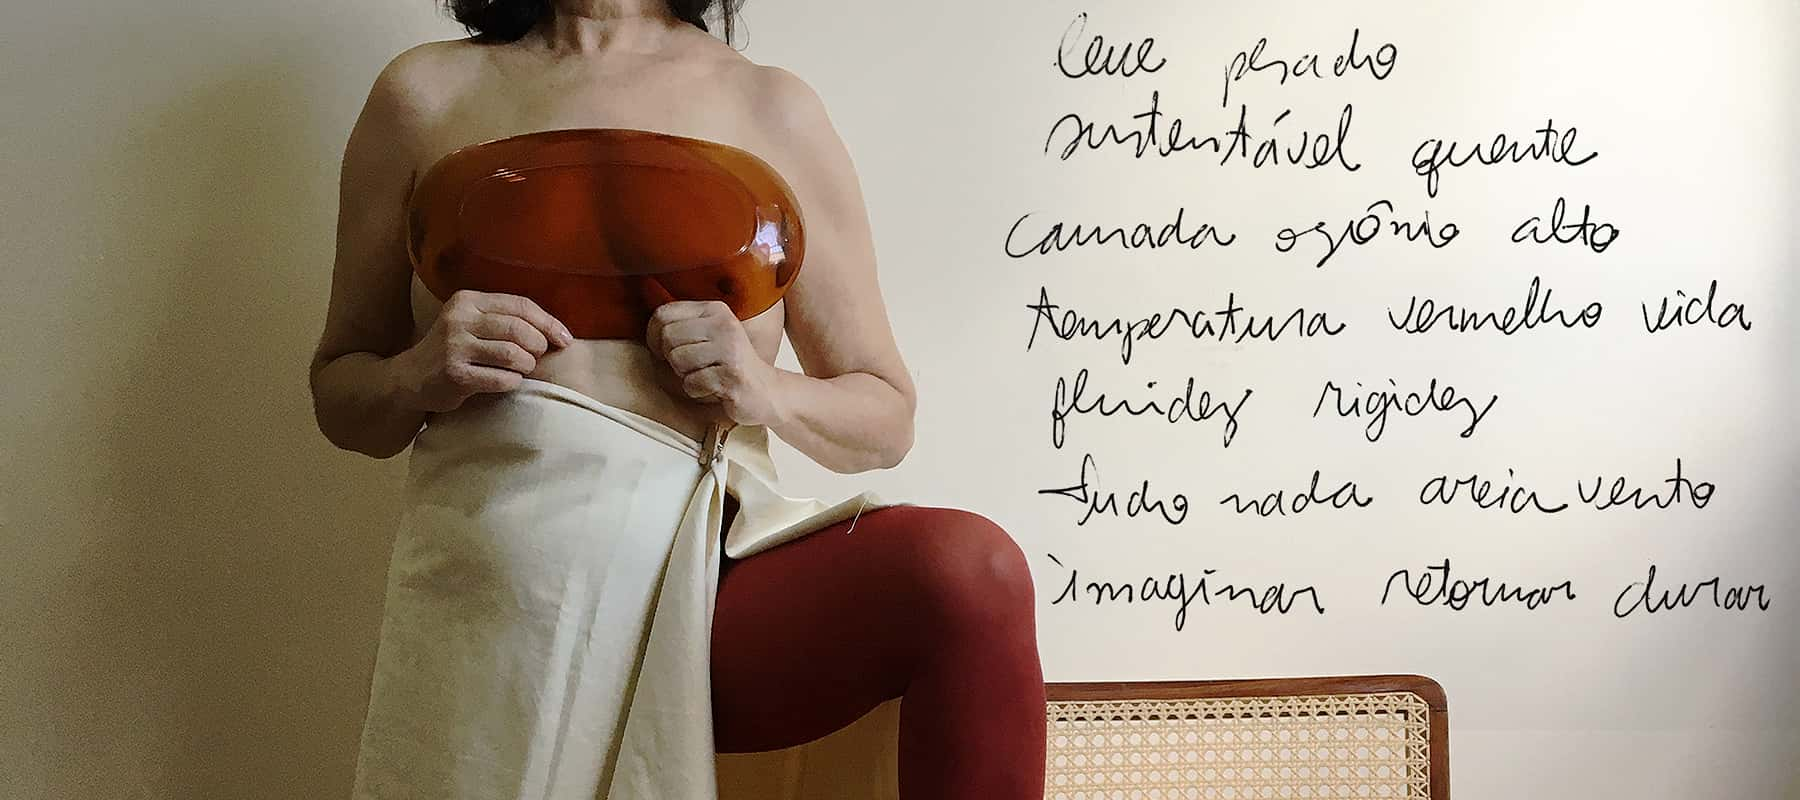 leve pesado
sustentável quente
camada ozônio alto
temperatura vermelho vida
fluidez rigidez
tudo nada areia vento
imaginar retornar durar